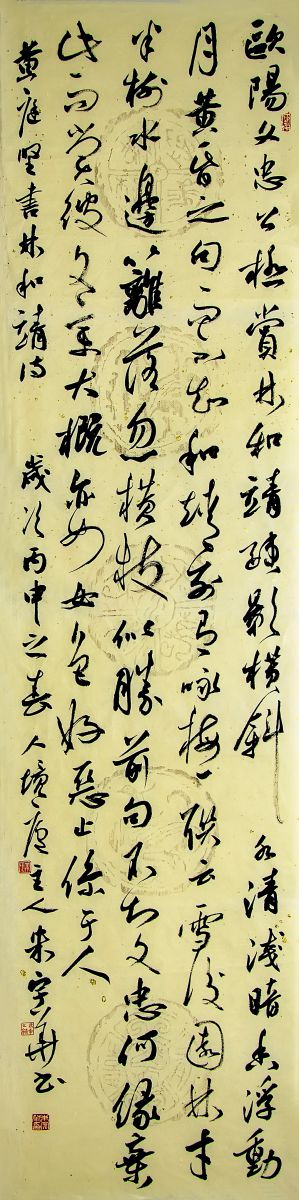 歐陽文忠公極賞林和靖疎影橫斜水清淺暗香浮動
月黃昏之句而不知和靖別有咏梅一聯云雪後園林才
半樹水邊籬落忽橫枝似勝前句不知文忠何緣棄
此而賞彼文章大概亦如女色好惡止係于人
黄庭堅書林和靖詩 歲次丙申之春人境廬主人朱